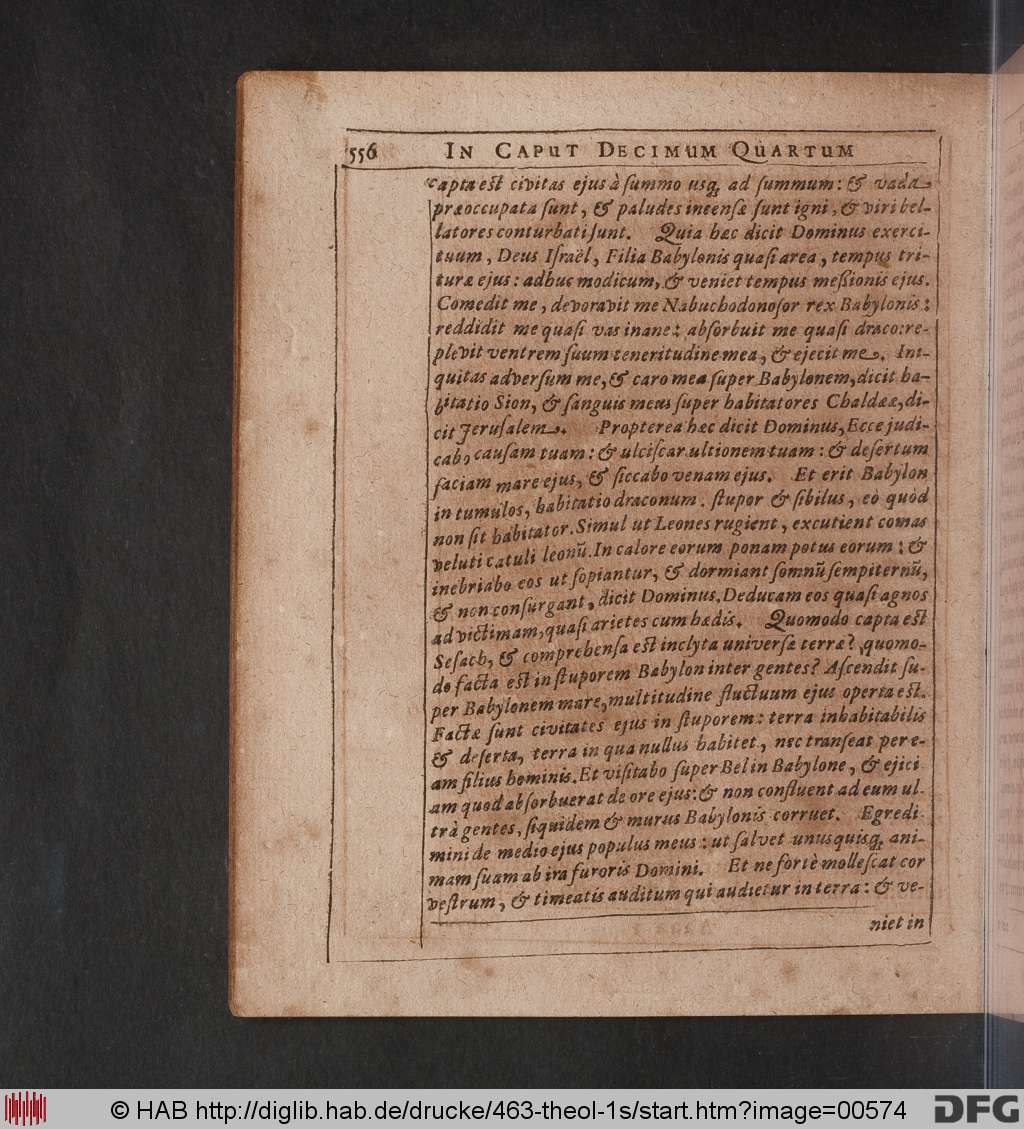 556 IN CAPUT DECIMUM QUARTUM
capta est civitas ejus à ſummo uſq́; ad ſummum: & vada
præoccupata ſunt, & paludes incenſæ ſunt igni, & viri bel-
latores conturbati ſunt. Quia hæc dicit Dominus exerci-
tuum, Deus Iſraël, Filia Babylonis quaſi area, tempus tri-
turæ ejus: adhuc modicum, & veniet tempus meſsionis ejus.
Comedit me, devoravit me Nabuchodonoſor rex Babylonis:
reddidit me quaſi vas inane: abſorbuit me quaſi draco: re-
plevit ventrem ſuum teneritudine mea, & ejecit me. Ini-
quitas adverſum me, & caro mea ſuper Babylonem, dicit ha-
bitatio Sion, & ſanguis meus ſuper habitatores Chaldææ, di-
cit Jeruſalem. Propterea hæc dicit Dominus, Ecce judi-
cabo cauſam tuam: & ulciſcar ultionem tuam: & deſertum
faciam mare ejus, & ſiccabo venam ejus. Et erit Babylon
in tumulos, habitatio draconum. ſtupor & ſibilus, eò quòd
non ſit habitator. Simul ut Leones rugient, excutient comas
veluti catuli leonũ. In calore eorum ponam potus eorum: &
inebriabo eos ut ſopiantur, & dormiant ſomnũ ſempiternũ,
& non conſurgant, dicit Dominus. Deducam eos quaſi agnos
ad victimam, quaſi arietes cum hædis. Quomodo capta eſt
Seſach, & comprehenſa eſt inclyta univerſæ terræ? quomo-
do facta eſt in ſtuporem Babylon inter gentes? Aſcendit ſu-
per Babylonem mare, multitudine fluctuum ejus operta eſt.
Factæ ſunt civitates ejus in ſtuporem: terra inhabitabilis
& deſerta, terra in qua nullus habitet, nec tranſeat per e-
am filius hominis. Et viſitabo ſuper Bel in Babylone, & ejici
am quod abſorbuerat de ore ejus: & non confluent ad eum ul-
trà gentes, ſiquidem & murus Babylonis corruet. Egredi-
mini de medio ejus populus meus: ut ſalvet unusquiſq; ani-
mam ſuam ab ira furoris Domini. Et ne fortè molleſcat cor
veſtrum, & timeatis auditum qui audietur in terra: & ve-
niet in
© HAB http://diglib.hab.de/drucke/463-theol-1s/start.htm?image=00574
DFG